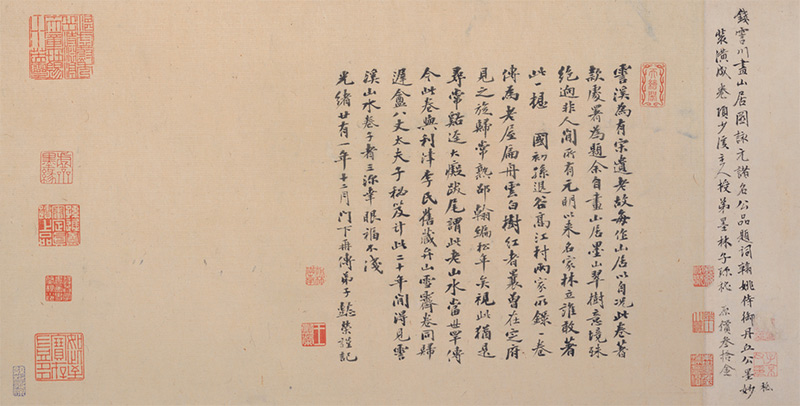 錢霅川畫山居圖詠元諸名公品題詞翰姚侍御丹丘公墨妙
裝潢成卷項少溪主人授弟墨林子珍祕 原價叁拾金
霅溪為有宋遺老故每作山居以自況此卷著
款處署為題余自畫山居墨山翠樹意境殊
絕迥非人間所有元明以來名家林立誰敢著
此一 國初孫退谷高江村兩家所錄一卷
傳為老屋扁舟雲白樹紅者曩曾在定府
見之旋歸常熟邵翰編松年矣視此猶是
尋常谿逕大癡跋尾謂此老山水當世罕傳
今此卷與利津李氏舊藏弁山雪霽卷同歸
遲盦八丈太夫子祕笈計此二十年間得見霅
溪山水卷子者三弥幸眼福不淺
光緒廿有一年十二月門下再傳弟子懿榮謹記